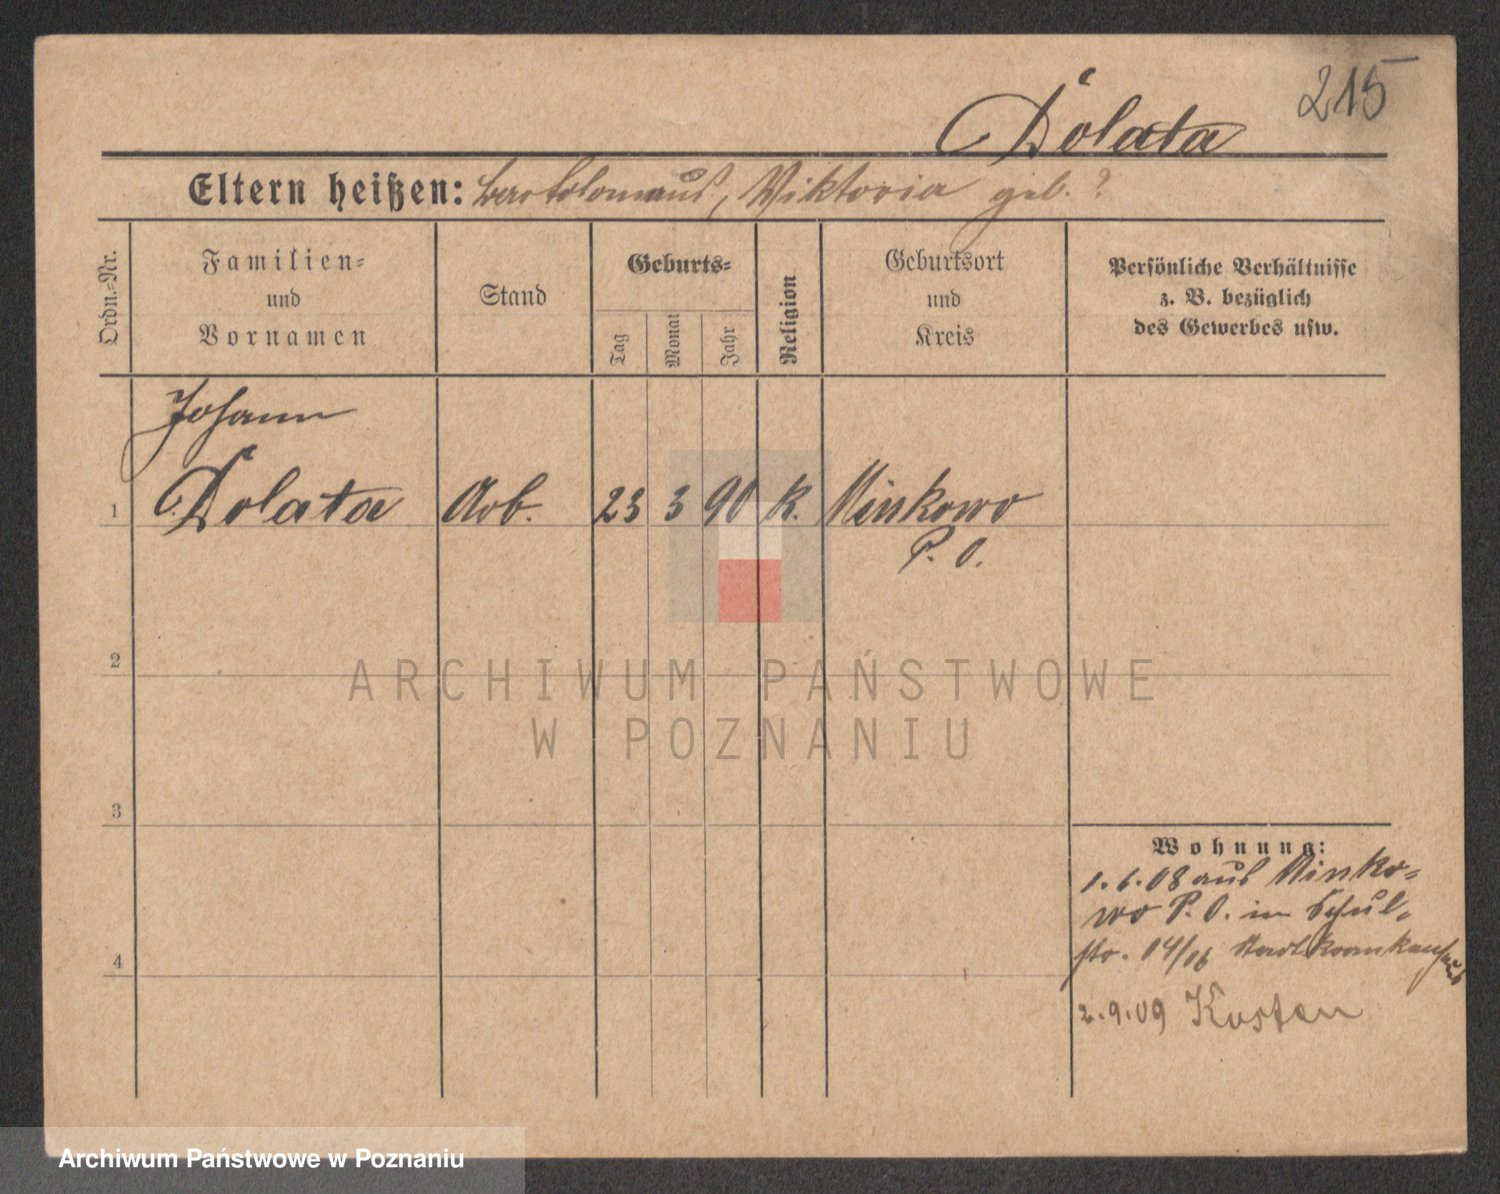 215
Dolata
Eltern heißen: Bartolomaus, Viktoria geb. ?
Ordn.-Nr.
Familien-
und
Vornamen
Stand
Geburts-
Tag
Monat
Jahr
Religion
Geburtsort
und
Kreis
Persönliche Verhältnisse
z. B. bezüglich
des Gewerbes usw.
Johann
1 Dolata Arb. 23 3 90 K. Minkowo
P. O.
2
3
4
Wohnung:
1.6.08 aus Minko-
wo P. O. in Schul-
str. 14/16 Stadtkrankenhaus
2.9.09 Kosten
ARCHIWUM PAŃSTWOWE
W POZNANIU
Archiwum Państwowe w Poznaniu